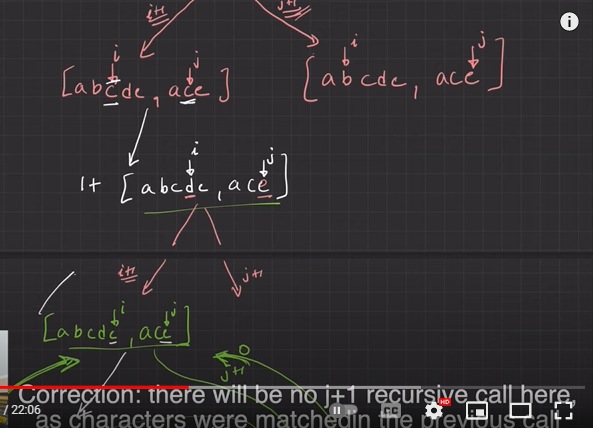 i+1 j+1
i j i j
[abcde, ace] [abcde, ace]
i j
1+ [abcde, ace]
i+1 j+1
i j
[abcde, ace]
0
j+1
Correction: there will be no j+1 recursive call here,
/ 22:06
HD
as characters were matchedin the previous call